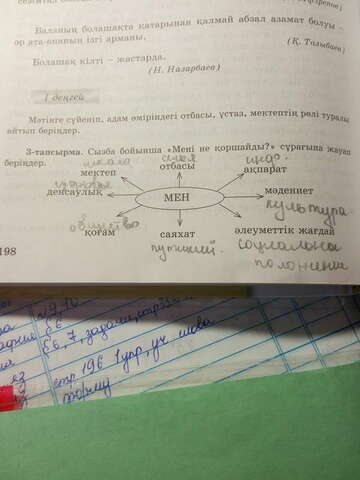 Баланың болашақта қатарынан қалмай абзал азамат болуы –
әр ата-ананың ізгі арманы.
(Қ. Талыбаев)
Болашақ кілті – жастарда.
(Н. Назарбаев)
I деңгей
Мәтінге сүйеніп, адам өміріндегі отбасы, ұстаз, мектептің рөлі туралы
айтып беріңдер.
3-тапсырма. Сызба бойынша «Мені не қоршайды?» сұрағына жауап
беріңдер.
школа семья инфор.
мектеп отбасы ақпарат
денсаулық МЕН мәдениет
культура
общество
қоғам саяхат әлеуметтік жағдай
198
стр 196 1 упр, уч. слова